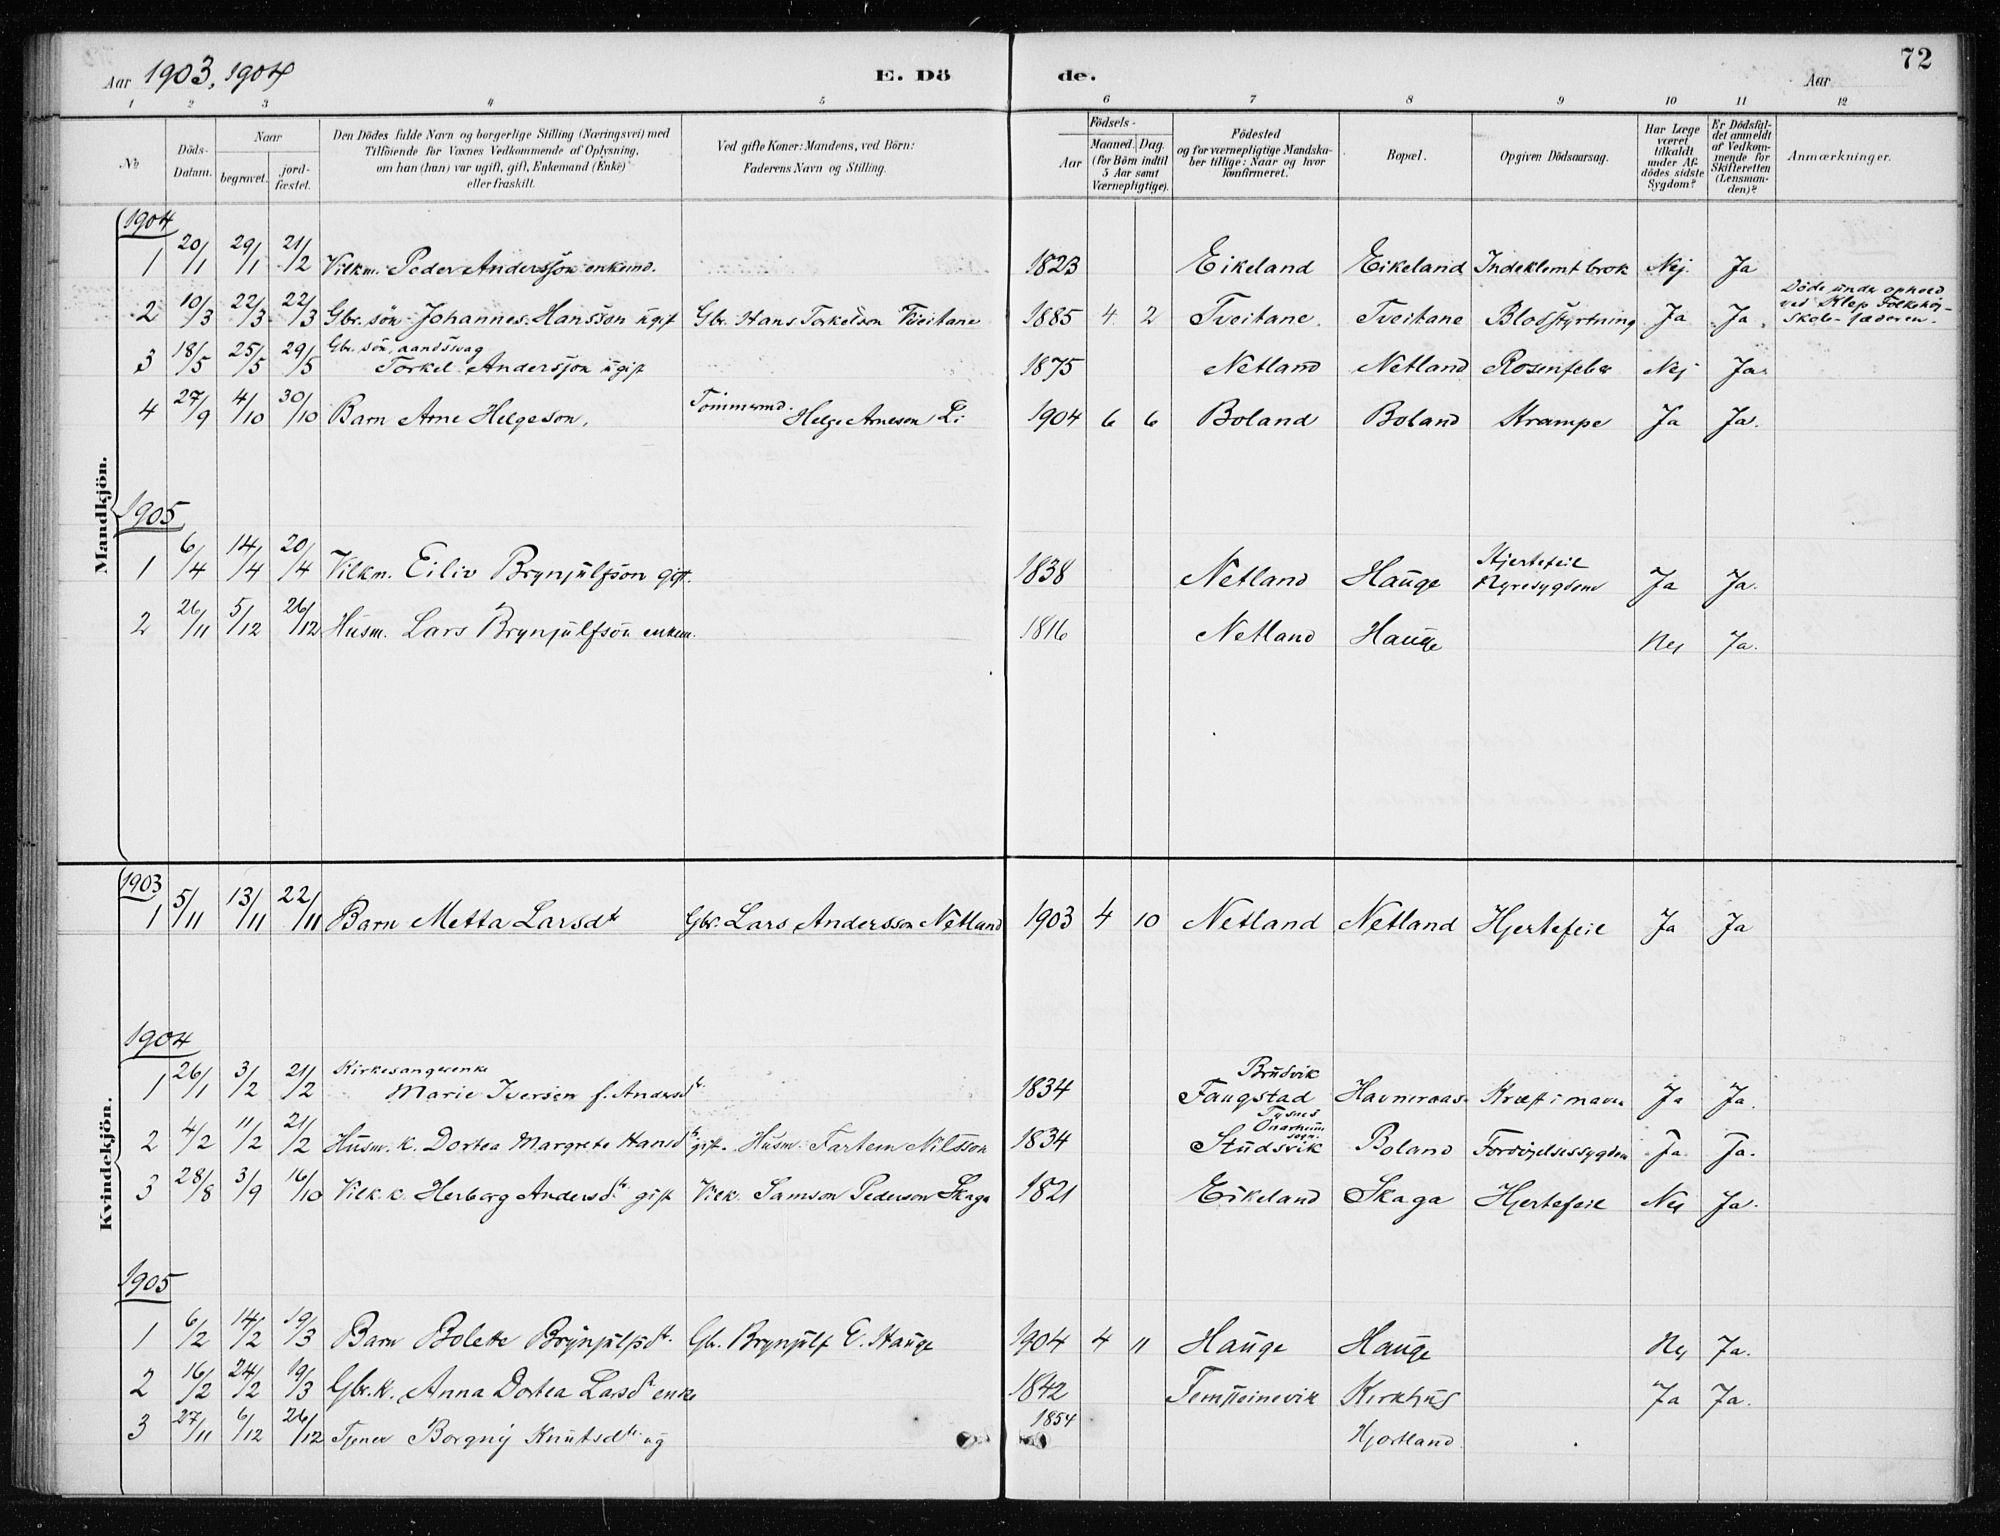 72
Aar 1903, 1904 E. Döde. Aar
1 2 3 4 5 6 7 8 9 10 11 12
No
Döds-Datum.
Naar
begravet.
jordfæstet.
Den Dödes fulde Navn og borgerlige Stilling (Næringsvei) med
Tilföiende for Voxnes Vedkommende af Oplysning,
om han (hun) var ugift, gift, Enkemand (Enke)
eller fraskilt.
Ved gifte Koner: Mandens, ved Börn:
Faderens Navn og Stilling.
Födsels-
Aar
Maaned. Dag.
(for Börn indtil
5 Aar samt
Værnepligtige).
Födested
og for værnepligtige Mandskaber tillige: Naar og hvor
konfirmeret.
Bopæl.
Opgiven Dödsaarsag.
Har Læge
været
tilkaldt
under Afdödes sidste
Sygdom?
Er Dödsfaldet anmeldt
af Vedkommende for
Skifteretten
(Lensmanden)?
Anmærkninger.
Mandkjön.
1904
1 20/1 29/1 21/2 Vilkm. Peder Andersson enkemd. 1823 Eikeland Eikeland Indeklemt brok Nej. Ja
2 10/3 22/3 22/3 Gbr. sön Johannes Hansson ugift Gbr. Hans Torkelson Tveitane 1885 4 2 Tveitane. Tveitane Blodstyrtning Ja Ja.
Döde unde ophold
ved Klep Folkehöj-
skole
3 18/5 25/5 29/5 Gbr. sön, aandsvag
Torkel Andersson ugift 1875 Netland Netland Rosenfeber Nej Ja.
4 27/9 4/10 30/10 Barn Arne Helgeson, Tömmermd. Helge Arneson Li 1904 6 6 Boland Boland Krampe Ja Ja.
1905
1 6/4 14/4 20/4 Vilkm. Eiliv Brynjulfson gift. 1838 Netland Hauge Hjertefeil
Nyresygdom Ja Ja.
2 26/11 5/12 26/12 Husm. Lars Brynjulfsön enkem. 1816 Netland Hauge Nej Ja.
Kvindekjön.
1903
1 5/11 13/11 22/11 Barn Metta Larsdt Gbr. Lars Andersson Netland 1903 4 10 Netland Netland Hjertefeil Ja Ja
1904
1 26/1 3/2 21/2 Kirkesangerenke
Marie Iversen f. Andersdt. 1834 Brudvik
Faugstad Havneraas Kræft i maven Ja Ja.
2 4/2 11/2 21/2 Husm. k. Dortea Margrete Hansdt gift. Husm. Fartein Nilsson 1834 Tysnes
Onarheim
sogn.
Studsvik Boland Fordöjelsessygdom Ja Ja.
3 28/8 3/9 16/10 Vilk. k. Herborg Andersdt gift Vilk. Samson Pederson Skaga 1821 Eikeland Skaga Hjertefeil Nej Ja.
1905
1 6/2 14/2 19/3 Barn Bolette Brynjulfsdt. Gb. Brynjulf E. Hauge 1904 4 11 Hauge Hauge Nej Ja.
2 16/2 24/2 19/3 Gbr. k. Anna Dortea Larsdt enke 1842 Femsteinevik Kirkhus Ja Ja.
3 27/11 6/12 26/12 Tjener Borgny Knutsdt. ug 1854 Hjortland